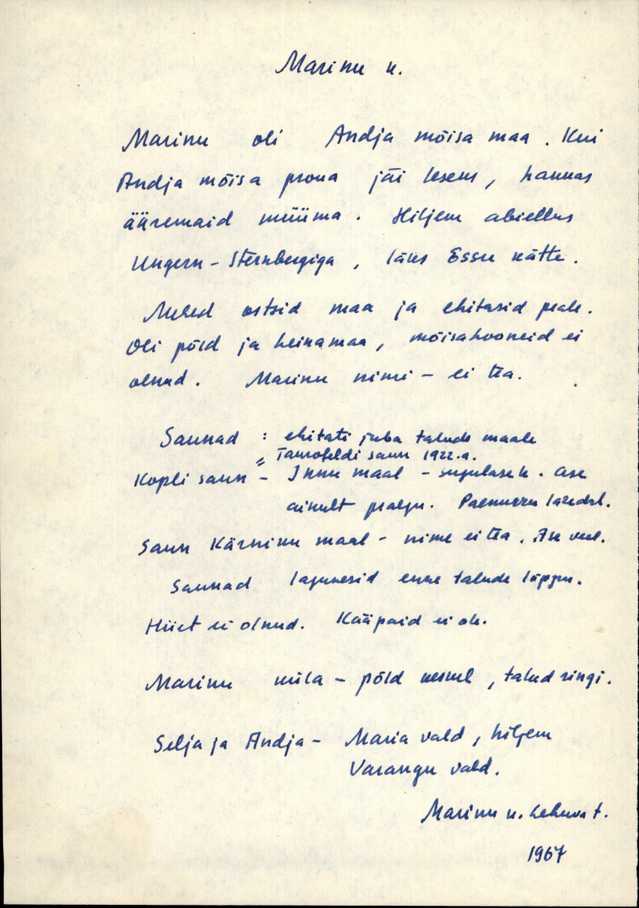 Marinu k.
Marinu oli Andja mõisa maa. Kui
Andja mõisa proua jäi leseks, hakkas
ääremaid müüma. Hiljem abiellus
Ungern-Sternbergiga, läks Essu kätte.
Mehed ostsid maa ja ehitasid peale.
Oli põld ja heinamaa, mõisahooneid ei
olnud. Marinu nimi - ei tea.
Saunad : ehitati juba talude maale
= Tamsfeldi saun 1922.a.
Kopli saun - Innu maal - sugulasele. Ase
ainult praegu. Paemurru lähedal.
Saun Kärninu maal - nime ei tea. Ase veel.
Saunad lagunesid enne talude lõppu.
Hiiet ei olnud. Kääpaid ei ole.
Marinu küla - põld keskel, talud ringi.
Selja ja Andja - Maria vald, hiljem
Varangu vald.
Marinu k. t.
1967